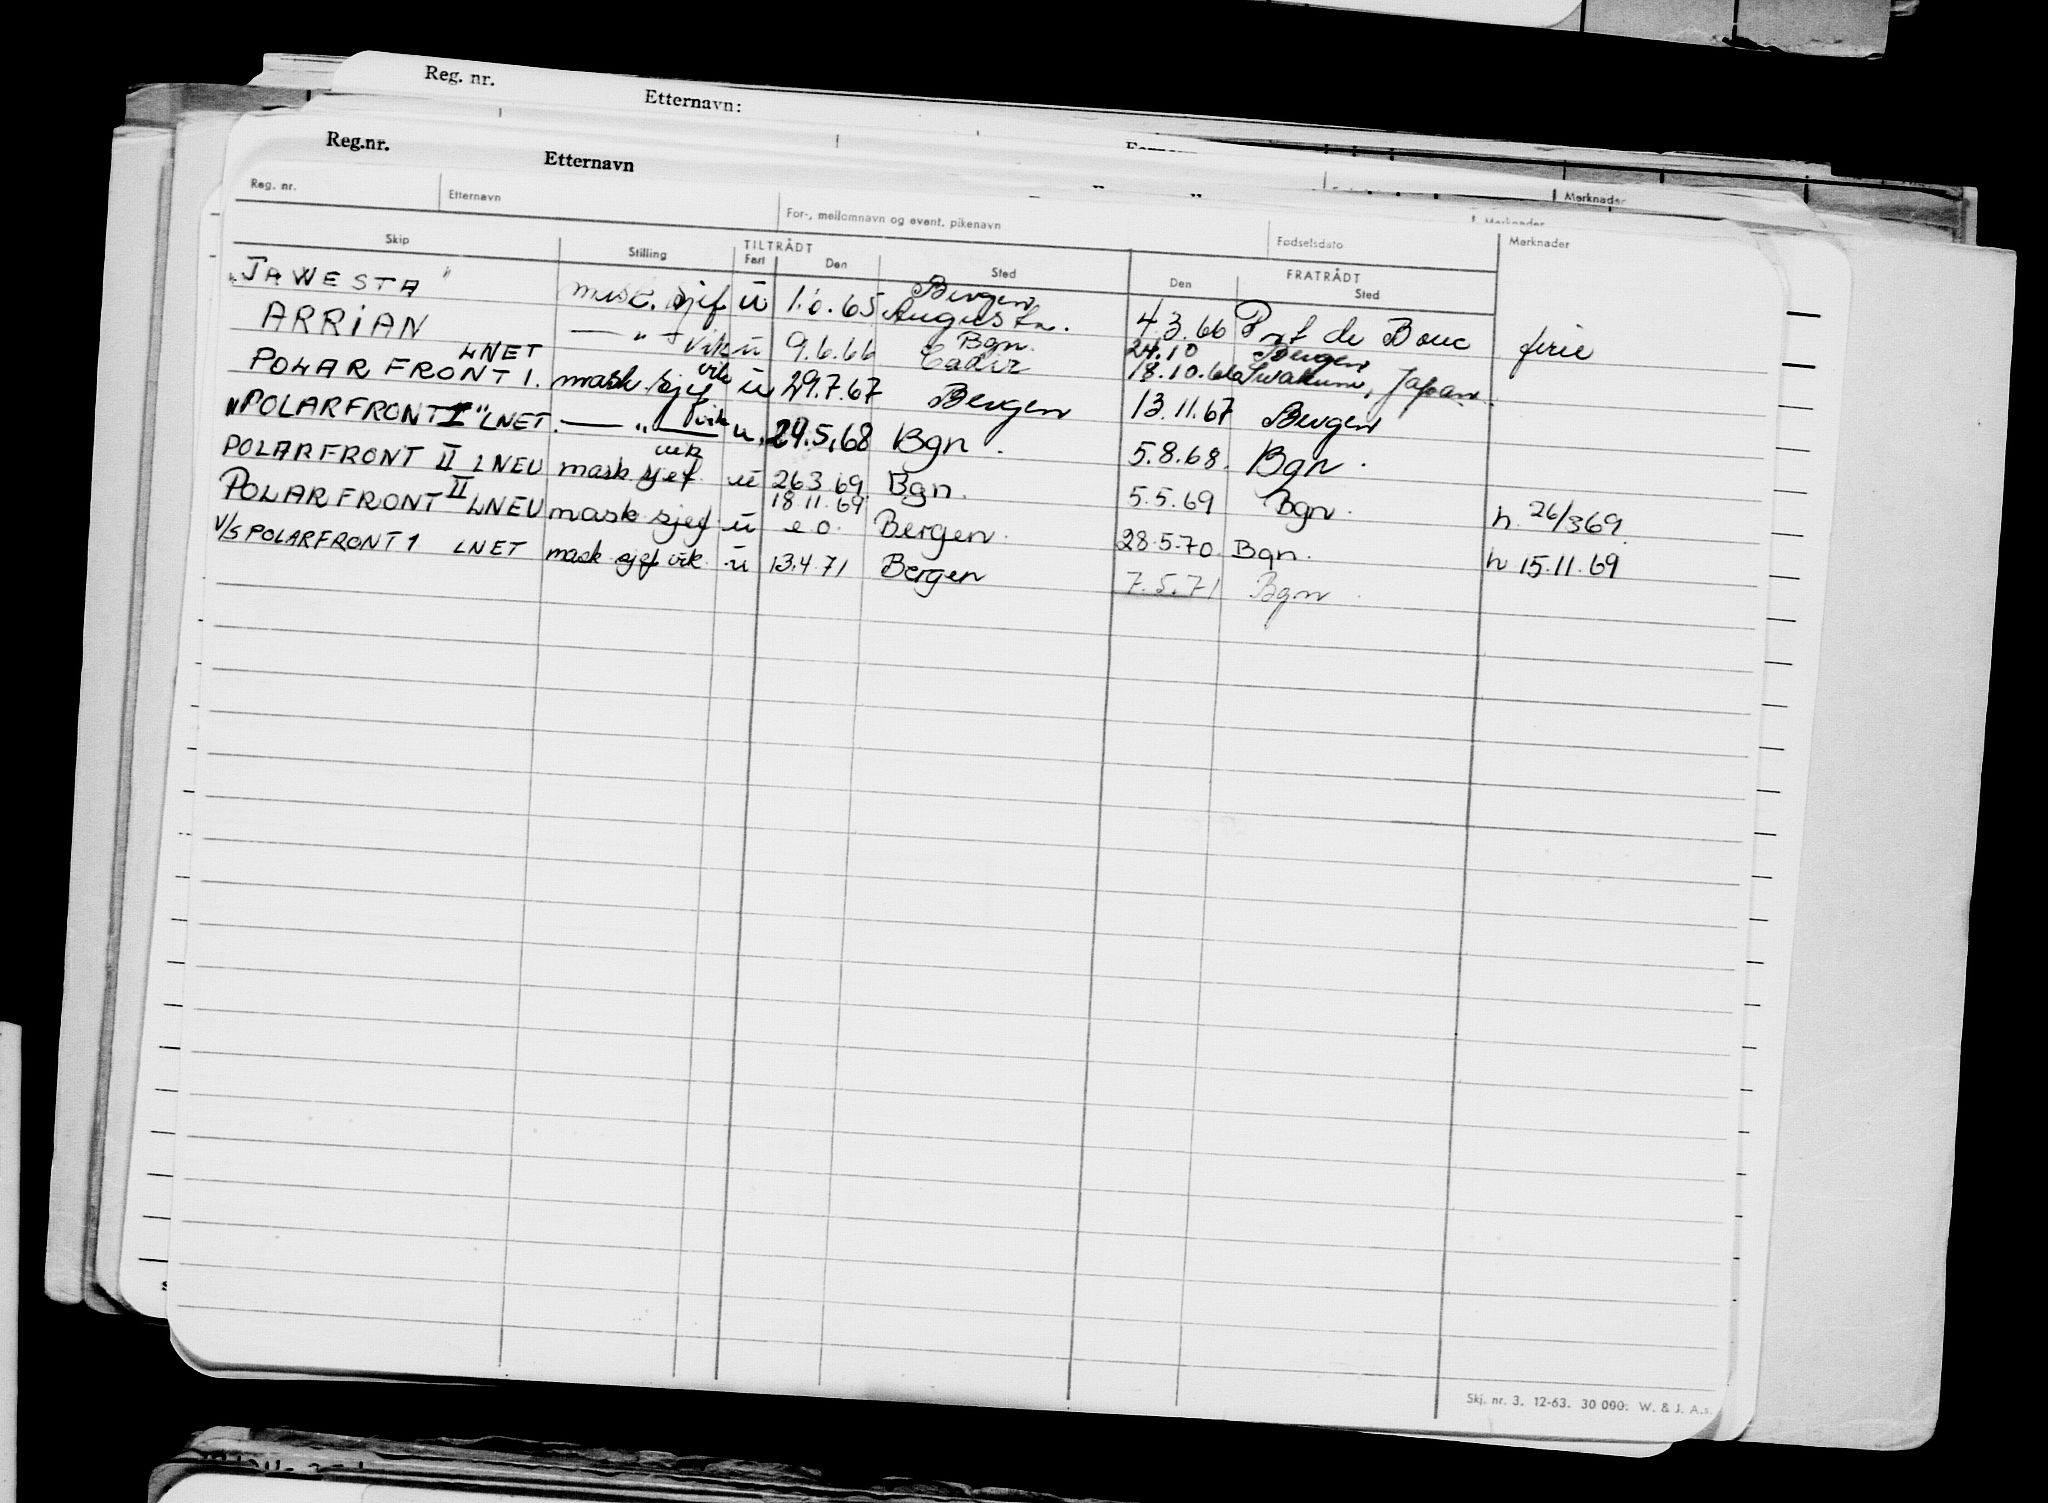 Reg. nr.
Etternavn:
Reg.nr.
Etternavn
Merknader
Reg. nr.
Etternavn
For-, mellomnavn og event. pikenavn
Fødselsdato
Merknader
Skip
Stilling
TILTRÅDT
Fart
Den
Sted
FRATRÅDT
Den
Sted
"JAWESTA" mask. sjef u 65 Bergen Augusta. 4.3.66 Port de Bouc ferie
ARRIAN — " — vik u 9.6.66 Bgn. Cadiz 24.10 Bergen 18.10.66 Japan.
POLARFRONT I. LNET mask. sjef vik u 29.7.67 Bergen 13.11.67 Bergen
"POLARFRONT I" LNET. — " — vik u. 29.5.68 Bgn. 5.8.68. Bgn.
POLARFRONT II LNEU mask sjef. vik u 26.3.69. Bgn. 5.5.69 Bgn. h. 26/369.
POLARFRONT II LNEU mask. sjef. u 18.11.69 e.o. Bergen. 28.5.70. Bgn. h 15.11.69
V/S POLARFRONT 1 LNET mask sjef vik. u 13.4.71 Bergen 7.5.71 Bgn.
Skj. nr. 3. 12-63. 30 000. W. & J. A.s.